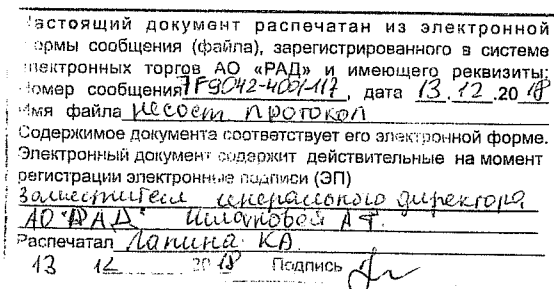 Настоящий документ распечатан из электронной
формы сообщения (файла), зарегистрированного в системе
электронных торгов АО «РАД» и имеющего реквизиты:
Номер сообщения 7F9042-4001-117, дата 13.12.2018
Имя файла несост протокол
Содержимое документа соответствует его электронной форме.
Электронный документ содержит действительные на момент
регистрации электронные подписи (ЭП)
Заместителя генерального директора
АО "РАД" А
Распечатал Лапина КА
13 12 2018 Подпись